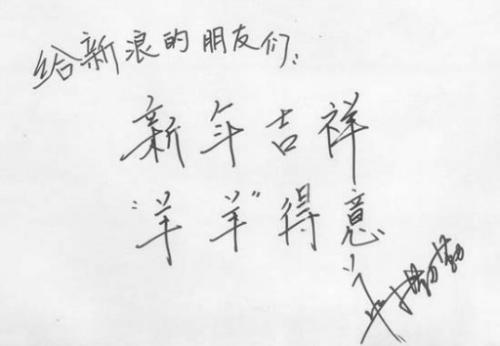 给新浪的朋友们:
新年吉祥
“羊羊”得意!